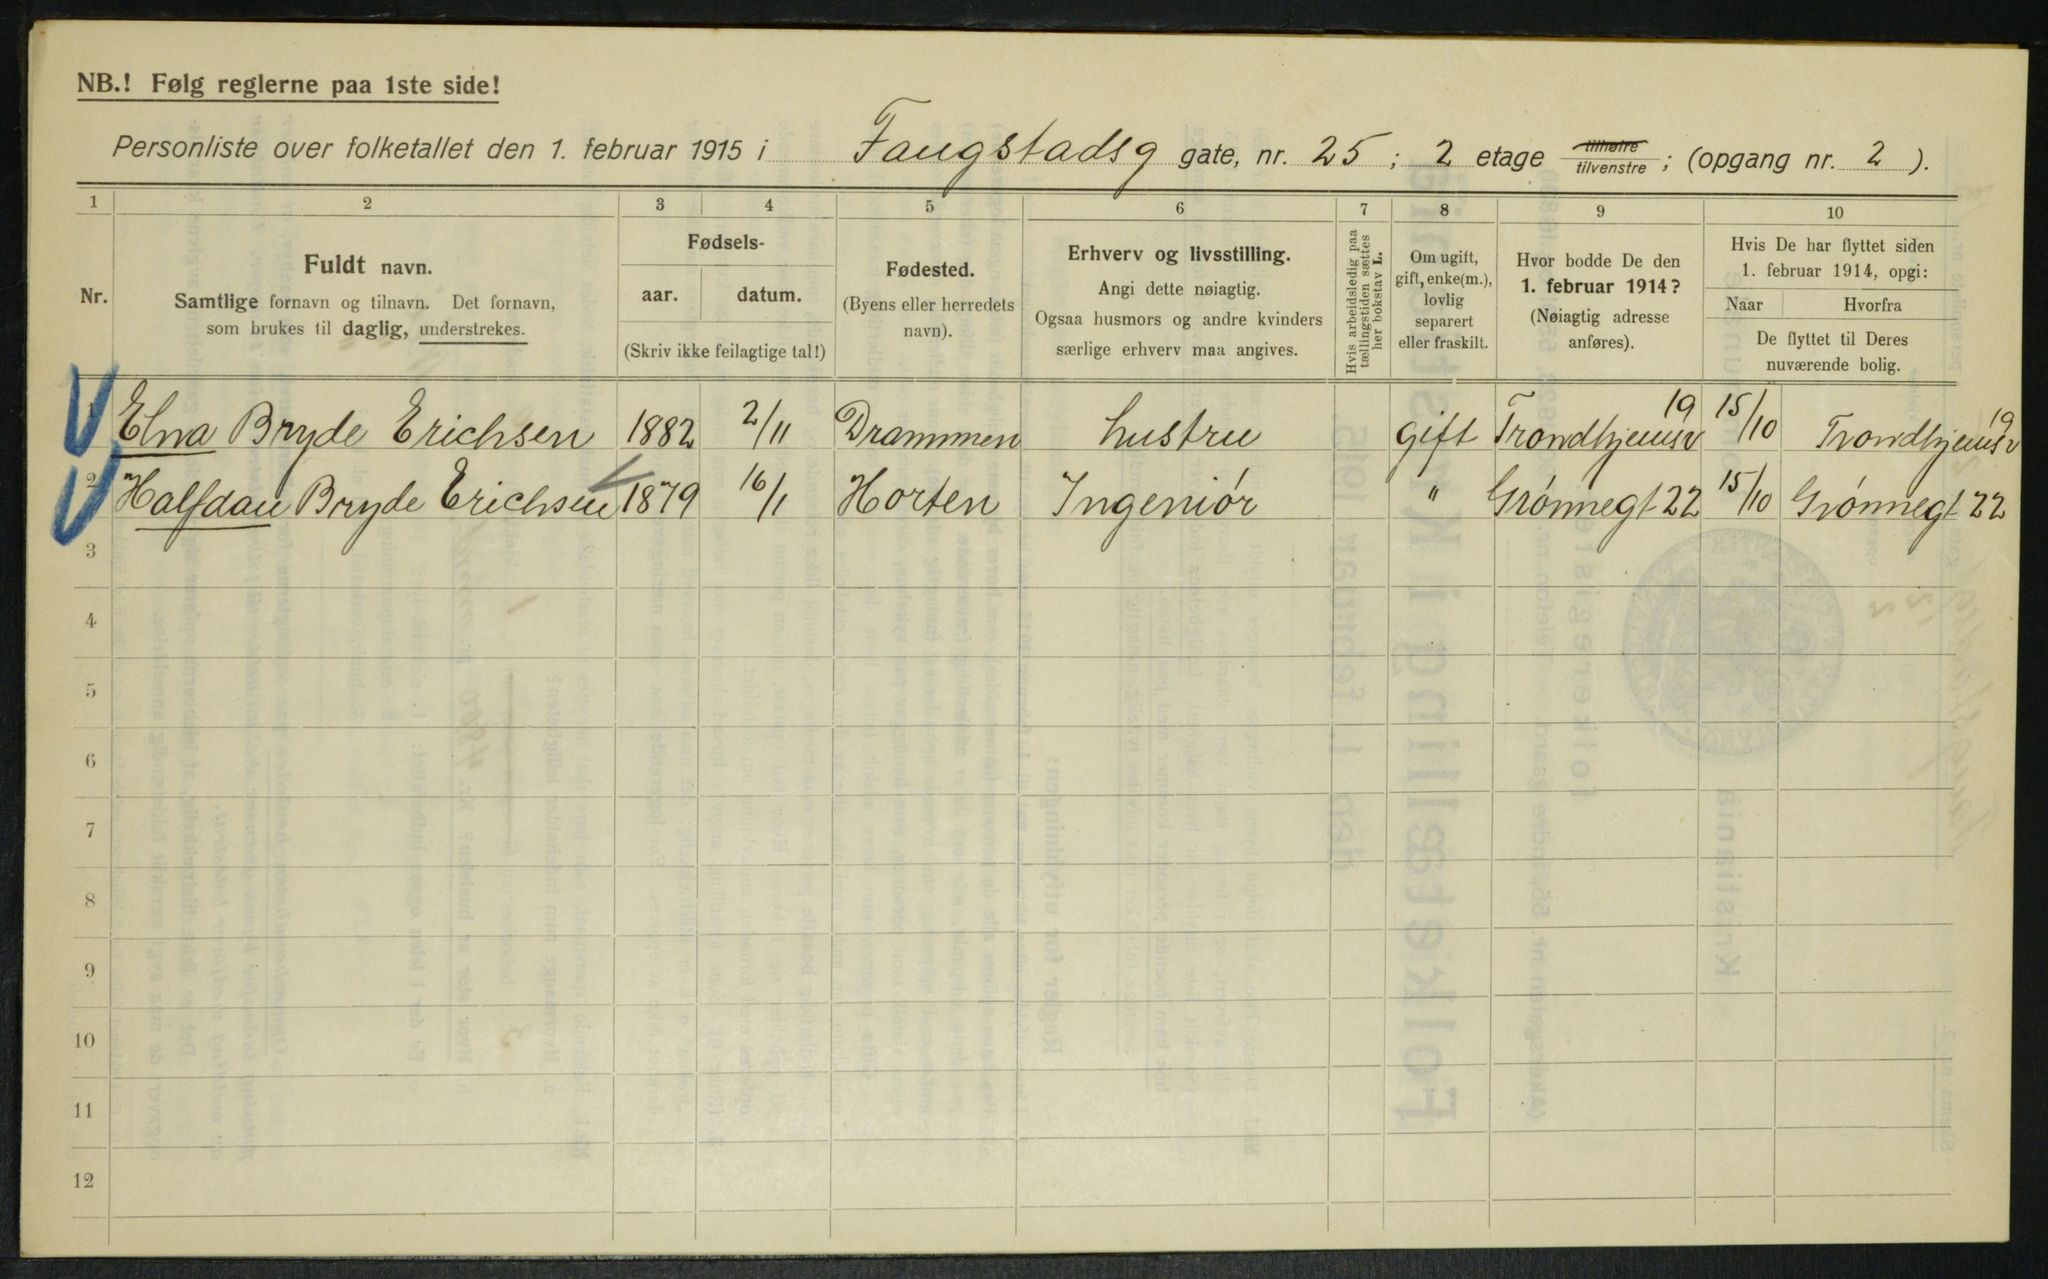 NB.! Følg reglerne paa 1ste side!
Personliste over folketallet den 1. februar 1915 i Faugstadsg gate, nr. 25 ; 2 etage tilhøire tilvenstre ; (opgang nr. 2 ).
1 2 3 4 5 6 7 8 9 10
Nr.
Fuldt navn.
Samtlige fornavn og tilnavn. Det fornavn,
som brukes til daglig, understrekes.
Fødsels-
aar. datum.
(Skriv ikke feilagtige tal!)
Fødested.
(Byens eller herredets
navn).
Erhverv og livsstilling.
Angi dette nøiagtig.
Ogsaa husmors og andre kvinders
særlige erhverv maa angives.
Hvis arbeidsledig paa
tællingstiden sættes
her bokstav L.
Om ugift,
gift, enke(m.),
lovlig
separert
eller fraskilt.
Hvor bodde De den
1. februar 1914?
(Nøiagtig adresse
anføres).
Hvis De har flyttet siden
1. februar 1914, opgi:
Naar Hvorfra
De flyttet til Deres
nuværende bolig.
1 Elna Bryde Erichsen 1882 2/11 Drammen hustru gift Trondhjemsv 19 15/10 Trondhjemsv 19
2 Halfdan Bryde Erichsen 1879 16/1 Horten Ingeniør " Grønnegt 22 15/10 Grønnegt 22
3
4
5
6
7
8
9
10
11
12